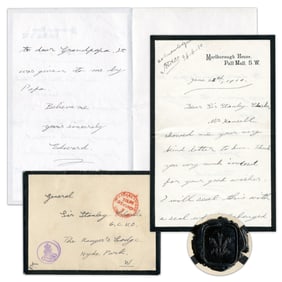 to dear Grandpapa. It
was given to me by
Papa.
Believe me
yours sincerely
Edward.
Marlborough House,
Pall Mall. S.W.
June 1910.
Dear Sir Stanley
Mr
showed me your very
kind letter, to him. Thank
you very much indeed
for your good wishes.
I will
a seal
General
Sir Stanley
G.C.V.O.
The Ranger's Lodge
Hyde Park
W